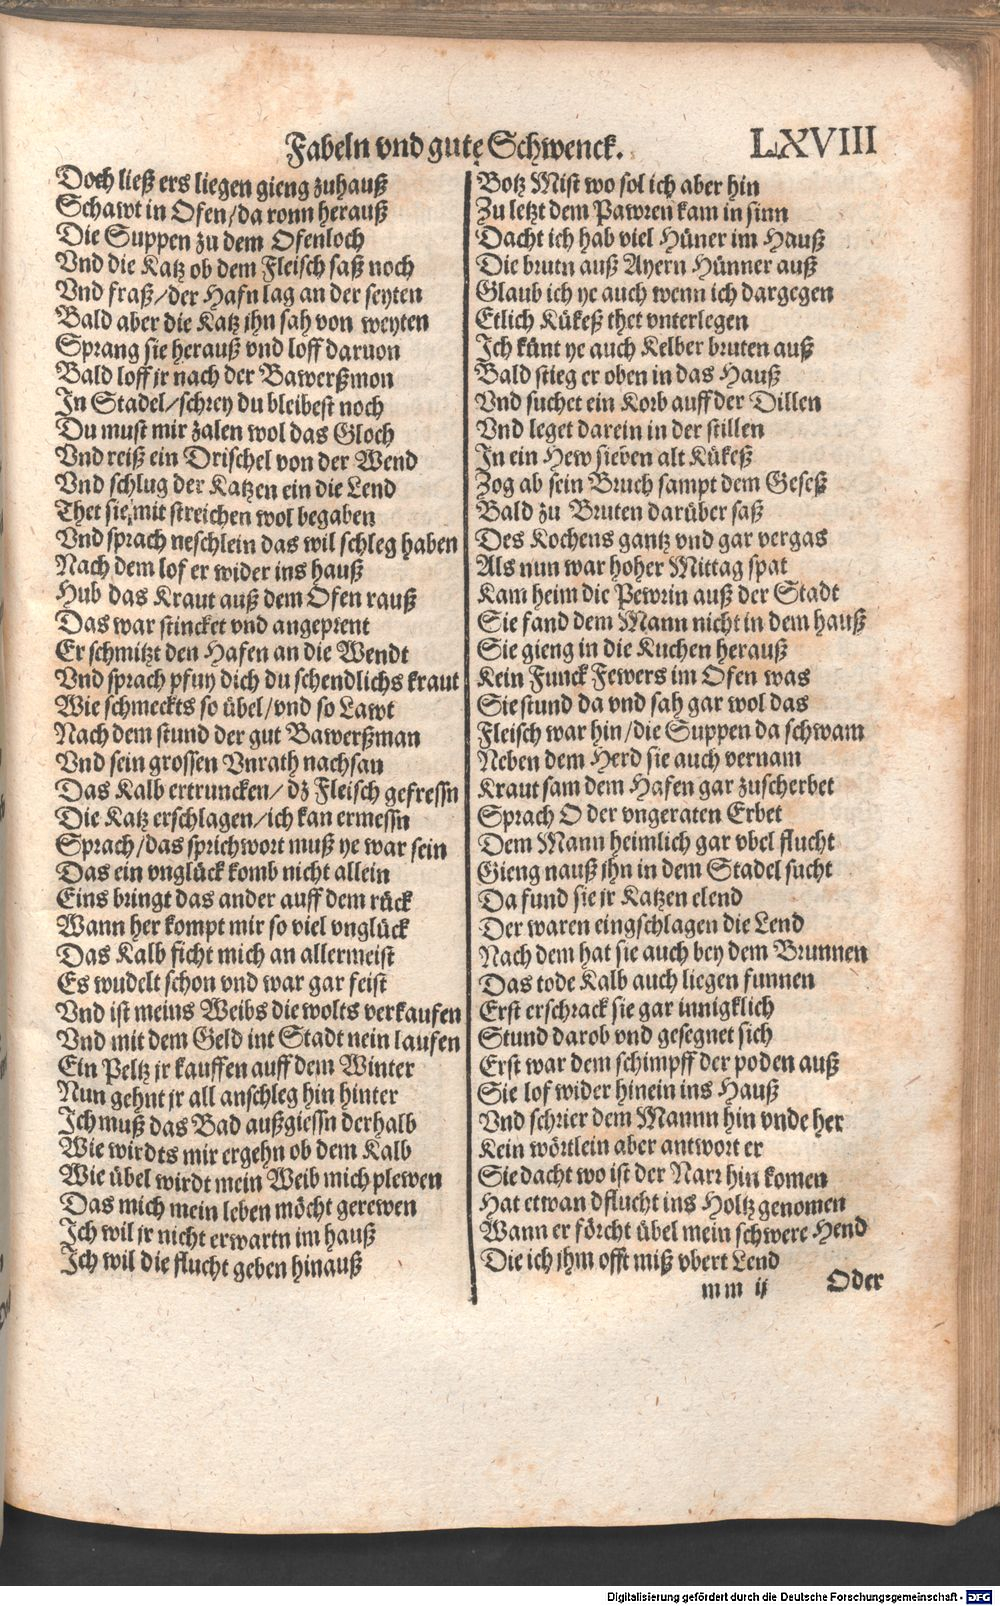 Fabeln vnd gute Schwenck.
LXVIII
Doch ließ ers liegen gieng zuhauß
Schawt in Ofen/da ronn herauß
Die Suppen zu dem Ofenloch
Vnd die Katz ob dem Fleisch saß noch
Vnd fraß/der Hafn lag an der seyten
Bald aber die Katz jhn sah von weyten
Sprang sie herauß vnd loff daruon
Bald loff jr nach der Bawerßmon
In Stadel/schrey du bleibest noch
Du must mir zalen wol das Gloch
Vnd reiß ein Drischel von der Wend
Vnd schlug der Katzen ein die Lend
Thet sie mit streichen wol begaben
Vnd sprach neschlein das wil schleg haben
Nach dem lof er wider ins hauß
Hub das Kraut auß dem Ofen rauß
Das war stincket vnd angeprent
Er schmitzt den Hafen an die Wendt
Vnd sprach pfuy dich du schendlichs kraut
Wie schmeckts so übel/vnd so Lawt
Nach dem stund der gut Bawerßman
Vnd sein grossen Vnrath nachsan
Das Kalb ertruncken/dz Fleisch gefressn
Die Katz erschlagen/ich kan ermessn
Sprach/das sprichwort muß ye war sein
Das ein vnglück komb nicht allein
Eins bringt das ander auff dem rück
Wann her kompt mir so viel vnglück
Das Kalb ficht mich an allermeist
Es wudelt schon vnd war gar feist
Vnd ist meins Weibs die wolts verkaufen
Vnd mit dem Geld int Stadt nein laufen
Ein Peltz jr kauffen auff dem Winter
Nun gehnt jr all anschleg hin hinter
Ich muß das Bad außgiessn derhalb
Wie wirdts mir ergehn ob dem Kalb
Wie übel wirdt mein Weib mich plewen
Das mich mein leben möcht gerewen
Ich wil jr nicht erwartn im hauß
Ich wil die flucht geben hinauß
Botz Mist wo sol ich aber hin
Zu letzt dem Pawren kam in sinn
Dacht ich hab viel Hüner im Hauß
Die brutn auß Ayern Hünner auß
Glaub ich ye auch wenn ich dargegen
Etlich Kükeß thet vnterlegen
Ich künt ye auch Kelber bruten auß
Bald stieg er oben in das Hauß
Vnd suchet ein Korb auff der Dillen
Vnd leget darein in der stillen
In ein Hew sieben alt Kükeß
Zog ab sein Bruch sampt dem Geseß
Bald zu Bruten darüber saß
Des Kochens gantz vnd gar vergas
Als nun war hoher Mittag spat
Kam heim die Pewrin auß der Stadt
Sie fand dem Mann nicht in dem hauß
Sie gieng in die Kuchen herauß
Kein Funck Fewers im Ofen was
Sie stund da vnd sah gar wol das
Fleisch war hin/die Suppen da schwam
Neben dem Herd sie auch vernam
Kraut sam dem Hafen gar zuscherbet
Sprach O der vngeraten Erbet
Dem Mann heimlich gar vbel flucht
Gieng nauß jhn in dem Stadel sucht
Da fund sie jr Katzen elend
Der waren eingschlagen die Lend
Nach dem hat sie auch bey dem Brunnen
Das tode Kalb auch liegen funnen
Erst erschrack sie gar innigklich
Stund darob vnd gesegnet sich
Erst war dem schimpff der poden auß
Sie lof wider hinein ins Hauß
Vnd schrier dem Mannn hin vnde her
Kein wörtlein aber antwort er
Sie dacht wo ist der Narr hin komen
Hat etwan dflucht ins Holtz genomen
Wann er förcht übel mein schwere Hend
Die ich jhm offt miß vbert Lend
mm ij
Oder
Digitalisierung gefördert durch die Deutsche Forschungsgemeinschaft - DFG